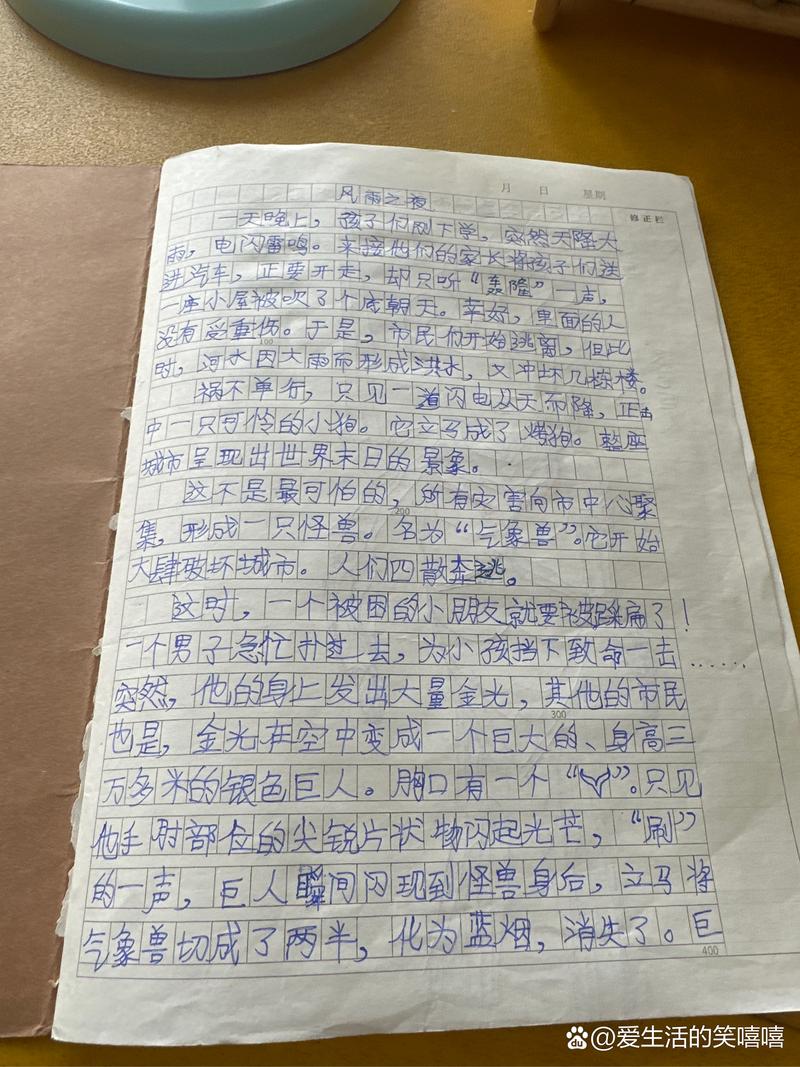 月 日 星期
修正栏
风雨之夜
一天晚上，孩子们刚下学，突然天降大
雨，电闪雷鸣。来接他们的家长将孩子们送
进汽车，正要开走，却只听“轰隆”一声，
一座小屋被吹了个底朝天。幸好，里面的人
没有受重伤。于是，市民们开始逃离，但此
100
时，河水因大雨而形成洪水，又冲坏几栋楼。
祸不单行，只见一道闪电从天而降，正击
中一只可怜的小狗。它立马成了烤狗。整座
城市呈现出世界末日的景象。
这不是最可怕的，所有灾害向市中心聚
200
集，形成一只怪兽。名为“气象兽”。它开始
大肆破坏城市。人们四散奔逃。
这时，一个被困的小朋友就要被踩扁了！
一个男子急忙扑过去，为小孩挡下致命一击……
突然，他的身上发出大量金光，其他的市民
300
也是，金光在空中变成一个巨大的、身高三
万多米的银色巨人。胸口有一个“ ”。只见
他手肘部位的尖锐片状物闪起光芒，“刷”
的一声，巨人瞬间闪现到怪兽身后，立马将
气象兽切成了两半，化为蓝烟，消失了。巨
400
du @爱生活的笑嘻嘻